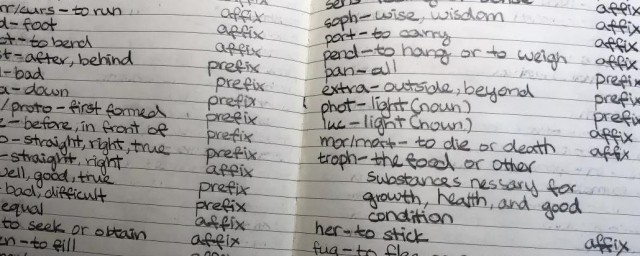 rr/curs - to run affix
d - foot affix
ct - to bend affix
st - after, behind prefix
l - bad prefix
a - down prefix
/proto - first formed prefix
e - before, in front of prefix
o - straight, right, true prefix
- straight, right affix
well, good, true prefix
bad, difficult prefix
equal affix
to seek or obtain affix
n - to fill
affix
soph - wise, wisdom affix
port - to carry affix
pend - to hang or to weigh affix
pan - all prefix
extra - outside, beyond prefix
phot - light (noun) prefix
luc - light (noun) affix
mor/mort - to die or death affix
troph - the food or other
substances nessary for
growth, health, and good
condition
her - to stick affix
fug - to flee